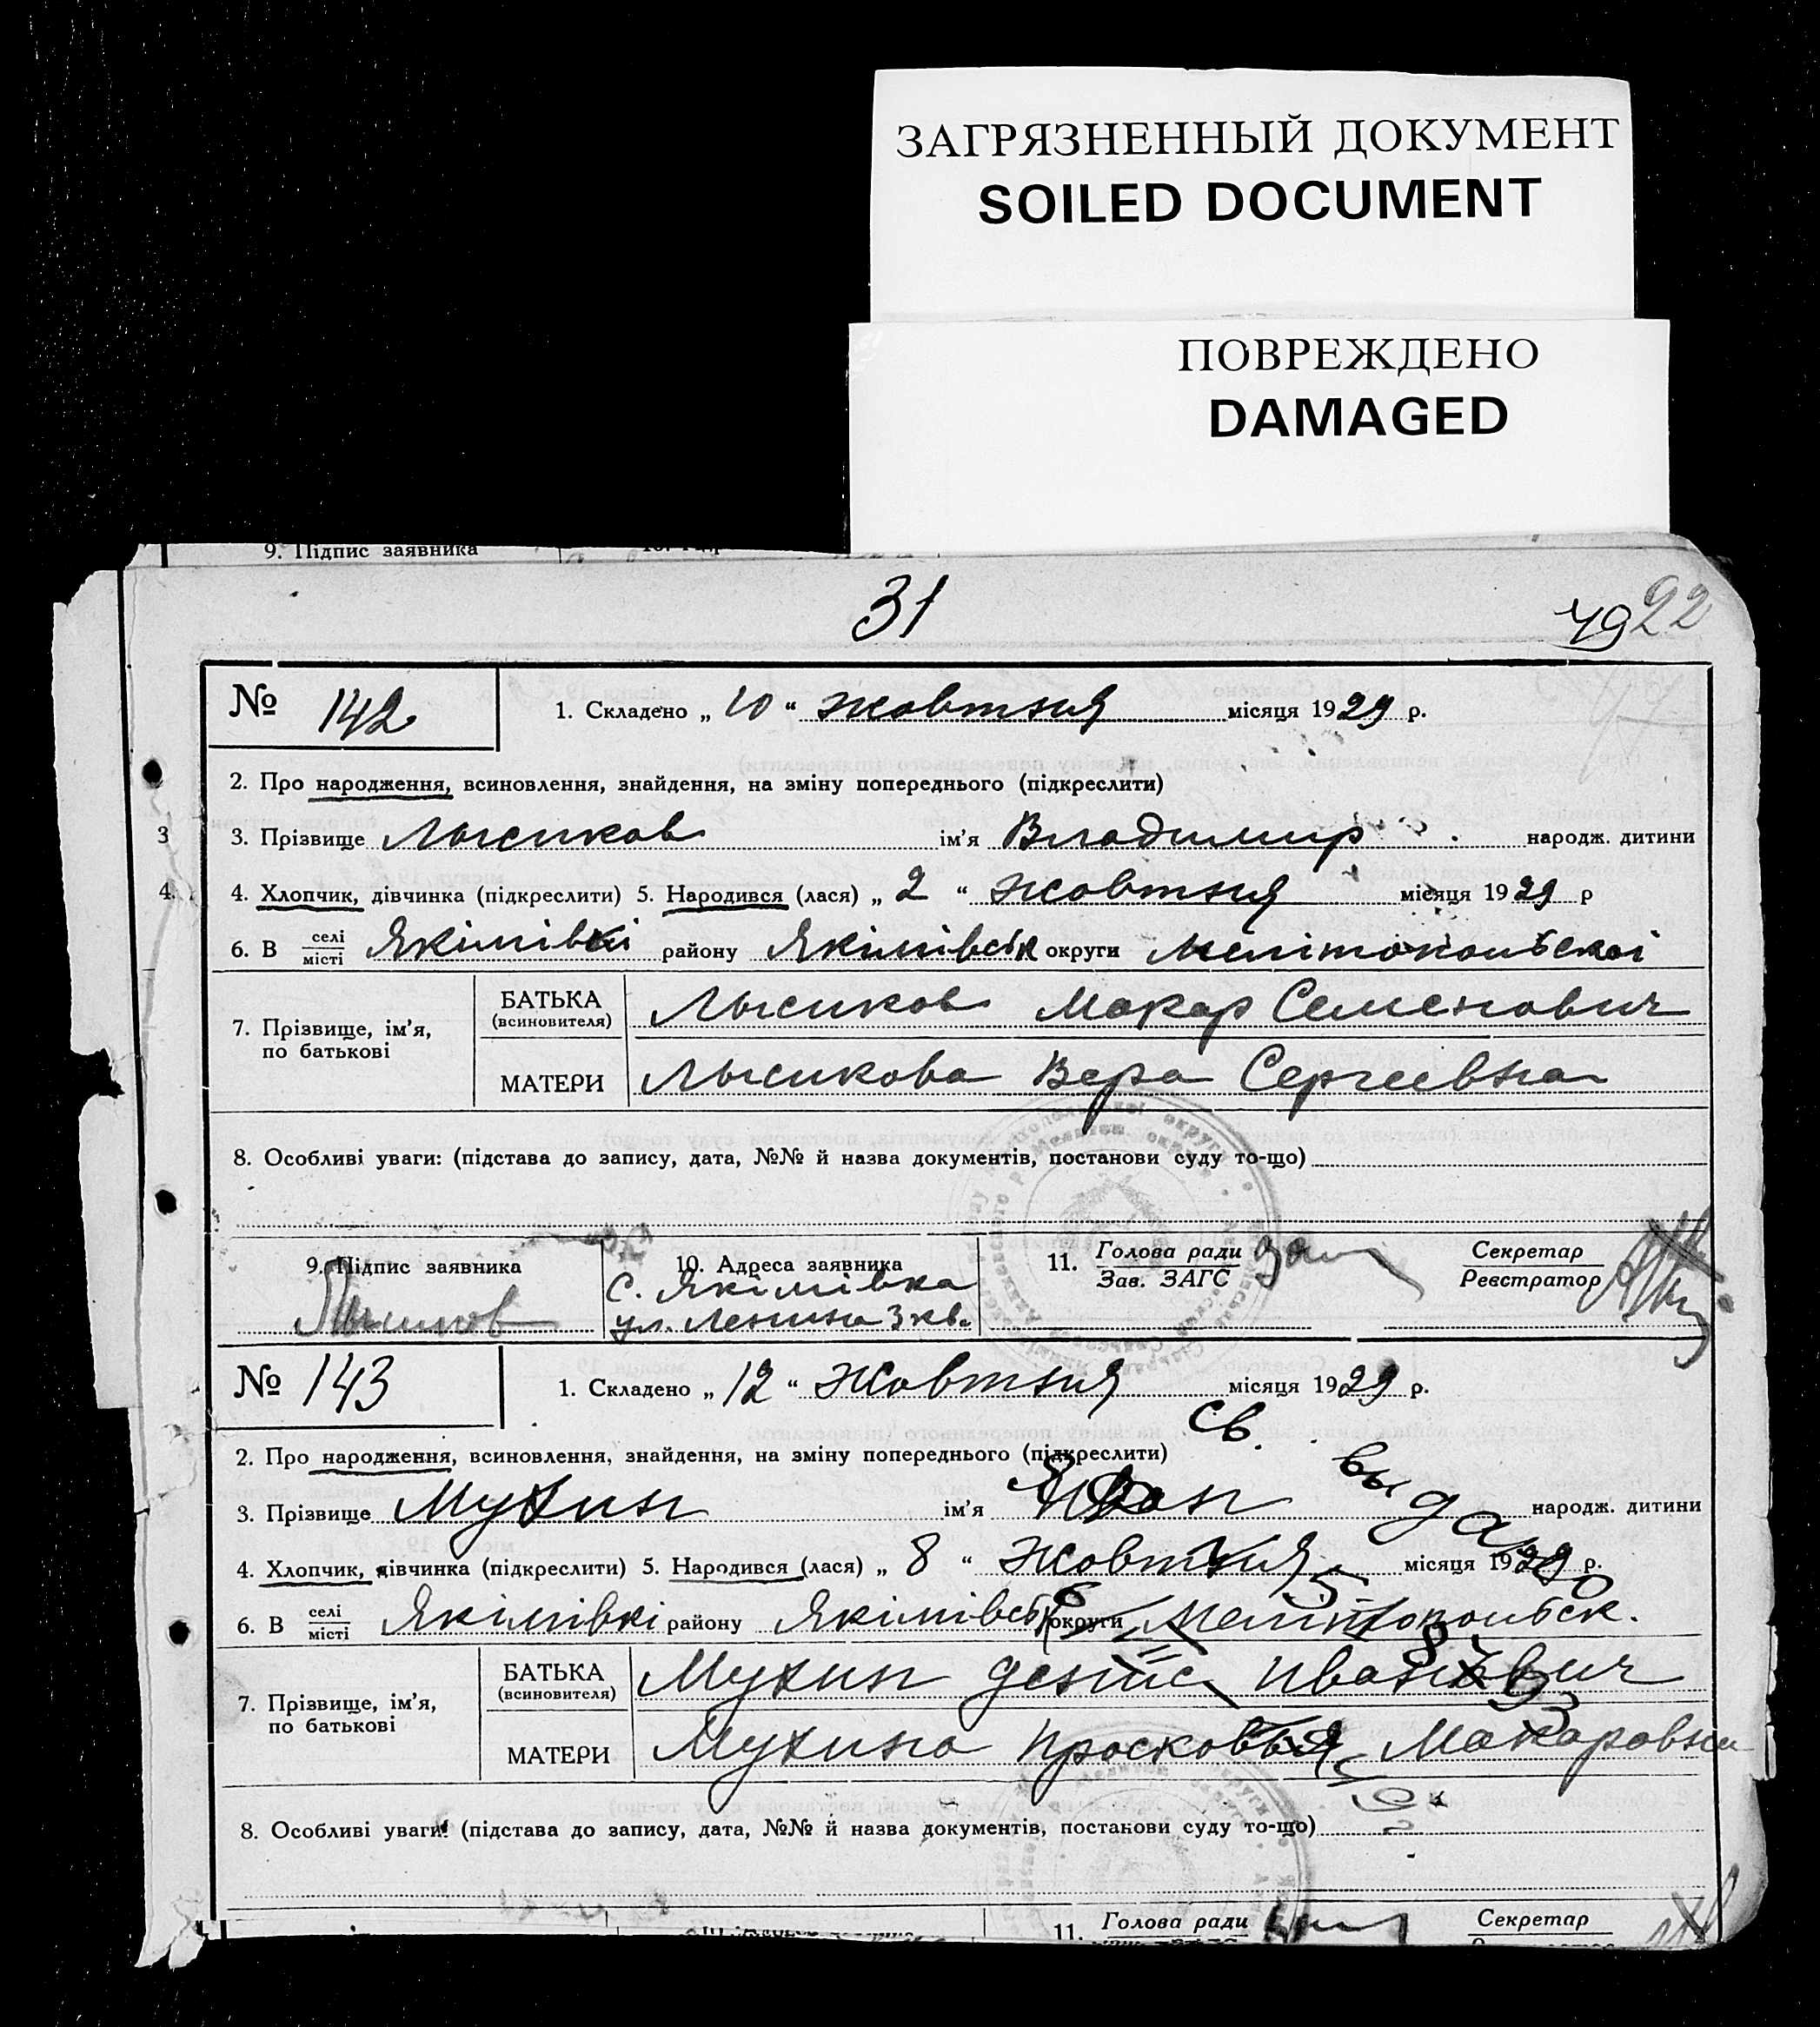 ЗАГРЯЗНЕННЫЙ ДОКУМЕНТ
SOILED DOCUMENT
ПОВРЕЖДЕНО
DAMAGED
9. Підпис заявника
31
79 92
№ 142 1. Складено „ 10 “ жовтня місяця 1929 р.
2. Про народження, всиновлення, знайдення, на зміну попереднього (підкреслити)
3 3. Прізвище Лысиков ім’я Владимир народж. дитини
4. 4. Хлопчик, дівчинка (підкреслити) 5. Народився (лася) „ 2 “ жовтня місяця 1929 р
6. В селі місті Якімівкі району Якімівськ округи Мелітопольскоі
7. Прізвище, ім’я, по батькові
БАТЬКА (всиновителя) Лысиков Макар Семенович
МАТЕРИ Лысикова Вера Сергеевна
8. Особливі уваги: (підстава до запису, дата, №№ й назва документів, постанови суду то-що)
9. Підпис заявника 10. Адреса заявника 11. Голова ради Зав. ЗАГС Секретар Реєстратор
с. Якімівка
ул. Ленина 3 кв.
№ 143 1. Складено „ 12 “ жовтня місяця 1929 р.
св. выдано
2. Про народження, всиновлення, знайдення, на зміну попереднього (підкреслити)
3. Прізвище Мухин ім’я Иван народж. дитини
4. Хлопчик, дівчинка (підкреслити) 5. Народився (лася) „ 8 “ жовтня місяця 1929 р.
6. В селі місті Якімівкі району Якімівськ округи Мелітопольск.
7. Прізвище, ім’я, по батькові
БАТЬКА (всиновителя) Мухин Денис Иванович
МАТЕРИ Мухина Просковья Макаровна
8. Особливі уваги: (підстава до запису, дата, №№ й назва документів, постанови суду то-що)
11. Голова ради Секретар